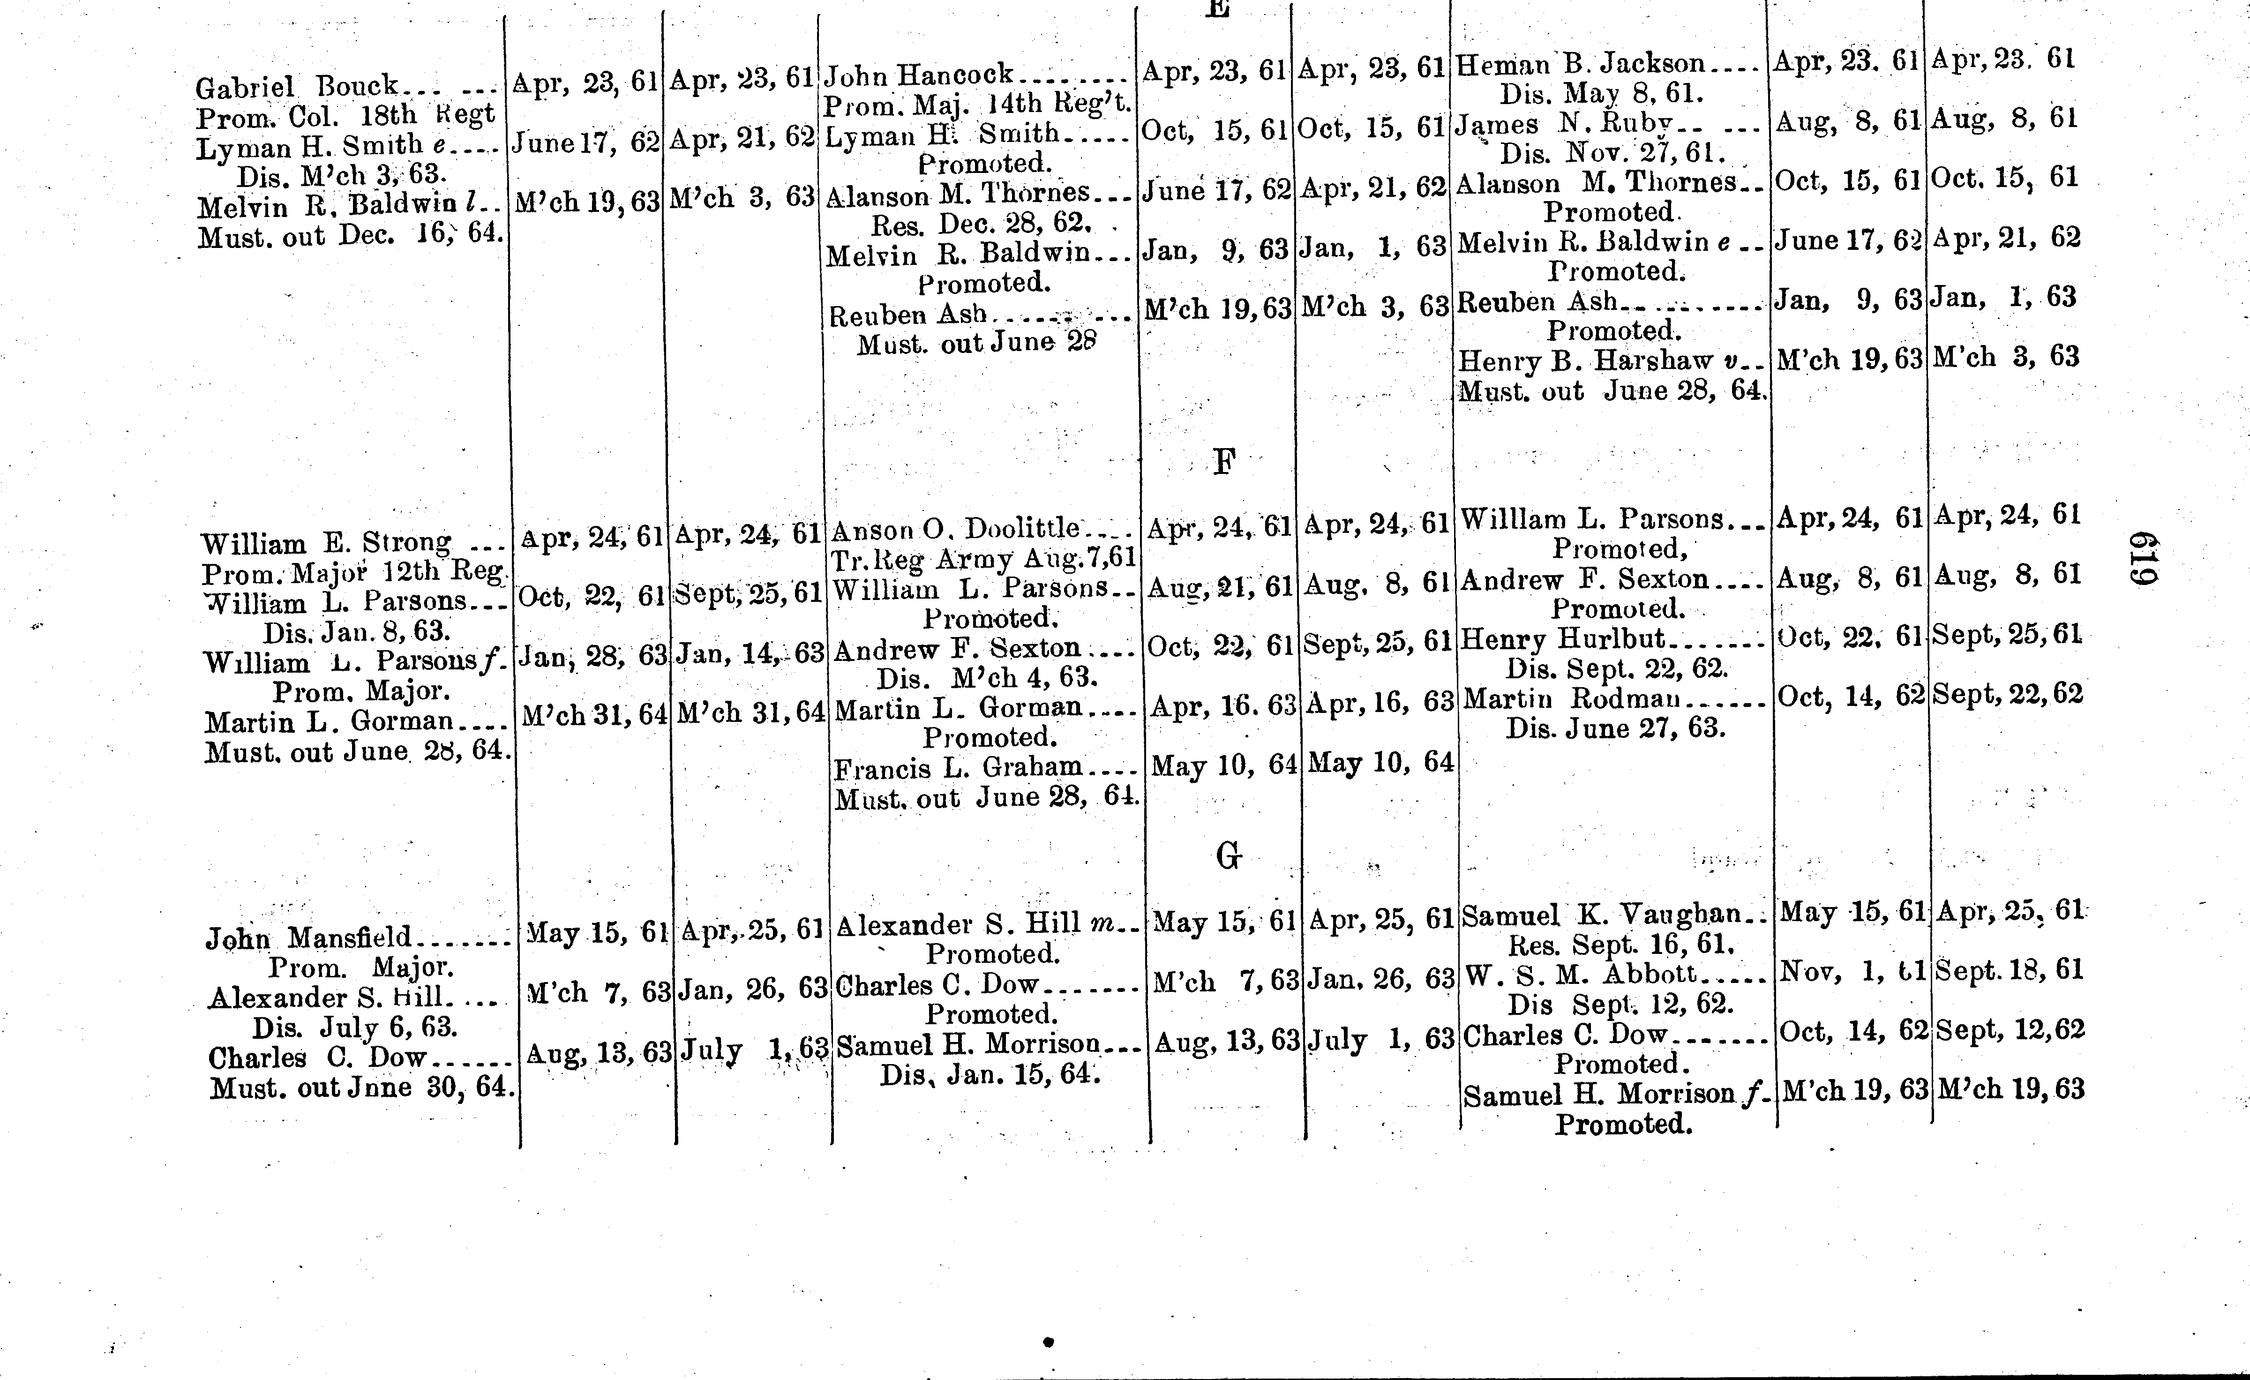 E
Gabriel Bouck... ... Apr, 23, 61 Apr, 23, 61 John Hancock........ Apr, 23, 61 Apr, 23, 61 Heman B. Jackson.... Apr, 23. 61 Apr, 23. 61
Prom. Col. 18th Regt Prom. Maj. 14th Reg't. Dis. May 8, 61.
Lyman H. Smith e.... June 17, 62 Apr, 21, 62 Lyman H. Smith..... Oct, 15, 61 Oct, 15, 61 James N. Ruby.. ... Aug, 8, 61 Aug, 8, 61
Dis. M'ch 3, 63. Promoted. Dis. Nov. 27, 61.
Melvin R. Baldwin l.. M'ch 19, 63 M'ch 3, 63 Alanson M. Thornes... June 17, 62 Apr, 21, 62 Alanson M. Thornes.. Oct, 15, 61 Oct. 15, 61
Must. out Dec. 16, 64. Res. Dec. 28, 62. Promoted.
Melvin R. Baldwin... Jan, 9, 63 Jan, 1, 63 Melvin R. Baldwin e .. June 17, 62 Apr, 21, 62
Promoted. Promoted.
Reuben Ash......... M'ch 19, 63 M'ch 3, 63 Reuben Ash.......... Jan, 9, 63 Jan, 1, 63
Must. out June 28 Promoted.
Henry B. Harshaw v.. M'ch 19, 63 M'ch 3, 63
Must. out June 28, 64.
F
William E. Strong ... Apr, 24, 61 Apr, 24, 61 Anson O. Doolittle.... Apr, 24, 61 Apr, 24, 61 Willlam L. Parsons... Apr, 24, 61 Apr, 24, 61
Prom. Major 12th Reg. Tr. Reg Army Aug. 7, 61 Promoted,
William L. Parsons... Oct, 22, 61 Sept, 25, 61 William L. Parsons.. Aug, 21, 61 Aug. 8, 61 Andrew F. Sexton.... Aug, 8, 61 Aug, 8, 61
Dis. Jan. 8, 63. Promoted. Promoted.
William L. Parsons f. Jan, 28, 63 Jan, 14, 63 Andrew F. Sexton.... Oct, 22, 61 Sept, 25, 61 Henry Hurlbut....... Oct, 22. 61 Sept, 25, 61
Prom. Major. Dis. M'ch 4, 63. Dis. Sept. 22, 62.
Martin L. Gorman.... M'ch 31, 64 M'ch 31, 64 Martin L. Gorman.... Apr, 16. 63 Apr, 16, 63 Martin Rodman...... Oct, 14, 62 Sept, 22, 62
Must. out June 28, 64. Promoted. Dis. June 27, 63.
Francis L. Graham.... May 10, 64 May 10, 64
Must. out June 28, 64.
619
G
John Mansfield....... May 15, 61 Apr, 25, 61 Alexander S. Hill m.. May 15, 61 Apr, 25, 61 Samuel K. Vaughan.. May 15, 61 Apr, 25, 61
Prom. Major. Promoted. Res. Sept. 16, 61.
Alexander S. Hill. ... M'ch 7, 63 Jan, 26, 63 Charles C. Dow....... M'ch 7, 63 Jan. 26, 63 W. S. M. Abbott..... Nov, 1, 61 Sept. 18, 61
Dis. July 6, 63. Promoted. Dis Sept. 12, 62.
Charles C. Dow...... Aug, 13, 63 July 1, 63 Samuel H. Morrison... Aug, 13, 63 July 1, 63 Charles C. Dow....... Oct, 14, 62 Sept, 12, 62
Must. out Jnne 30, 64. Dis, Jan. 15, 64. Promoted.
Samuel H. Morrison f. M'ch 19, 63 M'ch 19, 63
Promoted.